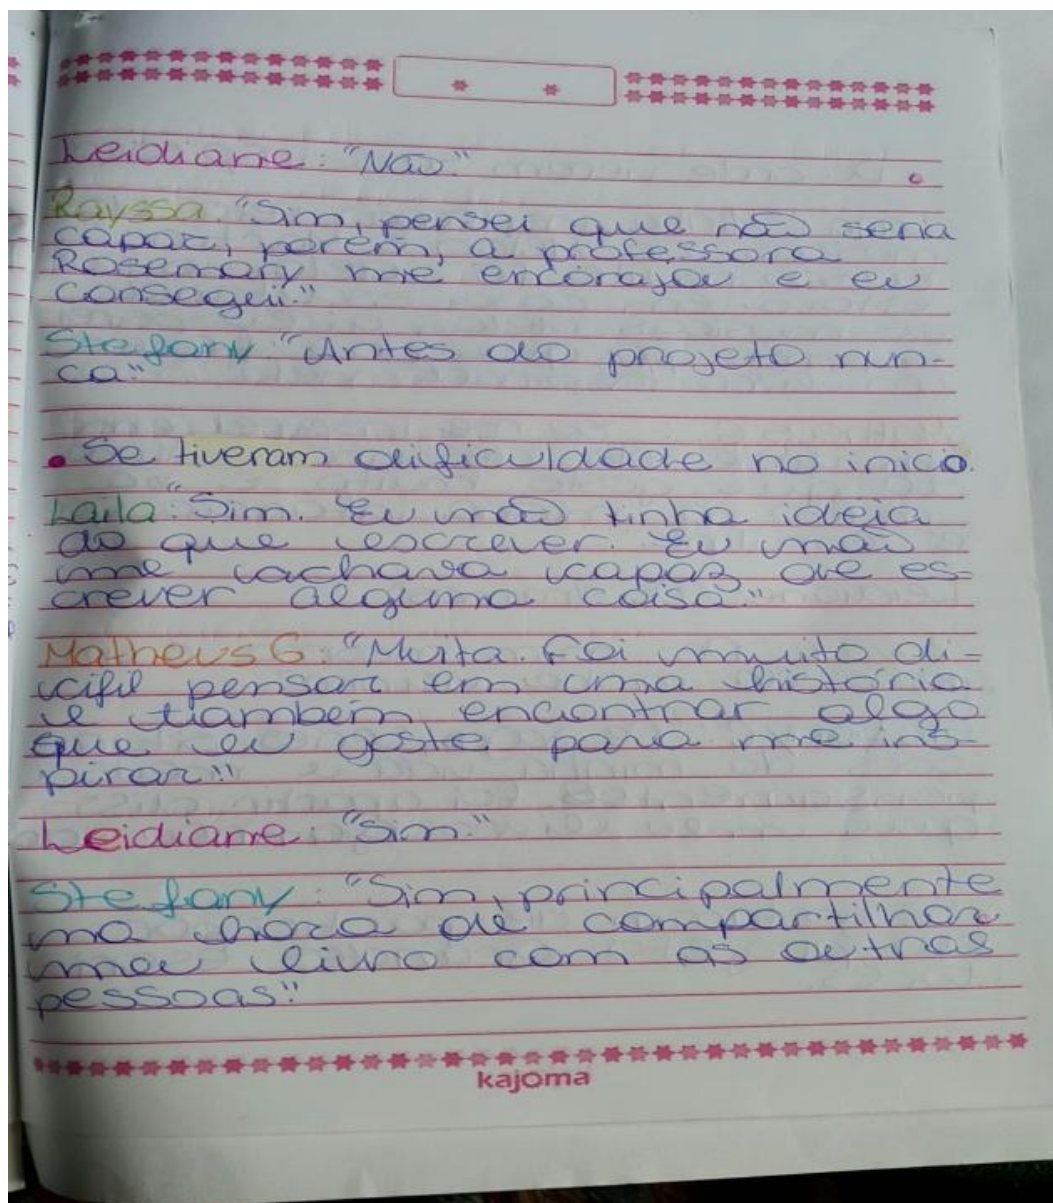 Leidiane: "Não."
Rayssa: "Sim, pensei que não seria
capaz, porém, a professora
Rosemary me encorajou e eu
consegui."
Stefany: "Antes do projeto nun-
ca."
• Se tiveram dificuldade no inicio.
Laila: "Sim. Eu não tinha ideia
do que escrever. Eu não
me achava capaz de es-
crever alguma coisa."
Matheus G: "Muita. Foi muito di-
cifil pensar em uma história
e também encontrar algo
que eu goste para me ins-
pirar."
Leidiane: "Sim."
Stefany: "Sim, principalmente
na hora de compartilhar
meu livro com as outras
pessoas."
kajoma